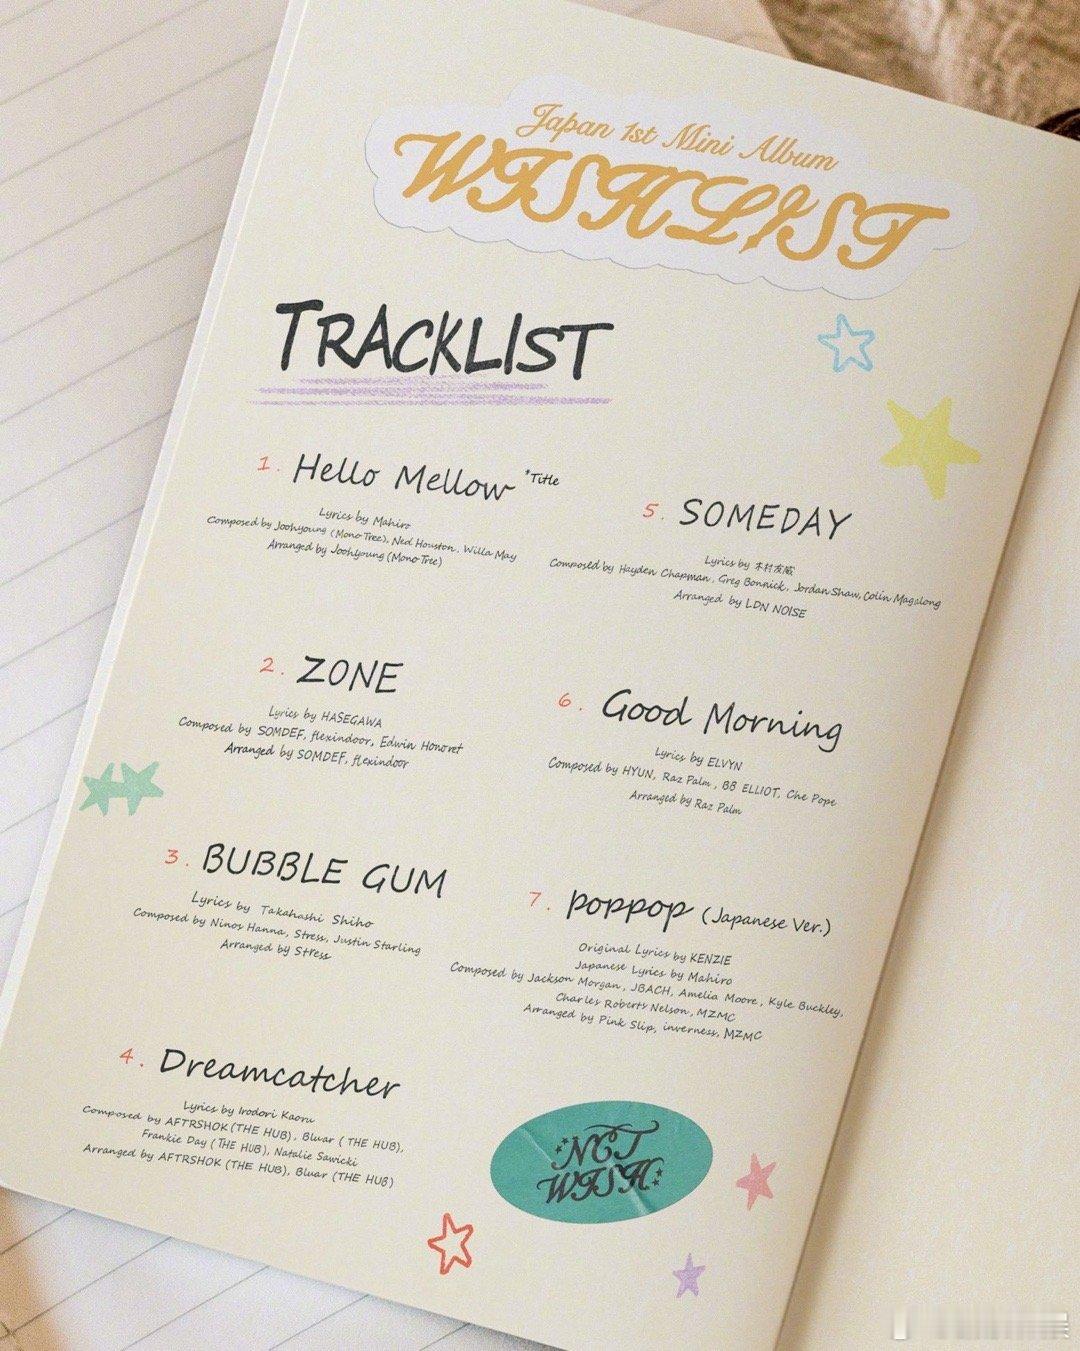 Japan 1st Mini Album
WISHLIST
TRACKLIST
1. Hello Mellow *Title
Lyrics by Mahiro
Composed by Joohyoung (MonoTree), Ned Houston, Willa May
Arranged by Joohyoung (MonoTree)
2. ZONE
Lyrics by HASEGAWA
Composed by SOMDEF, flexindoor, Edwin Honoret
Arranged by SOMDEF, flexindoor
3. BUBBLE GUM
Lyrics by Takahashi Shiho
Composed by Ninos Hanna, Stress, Justin Starling
Arranged by Stress
4. Dreamcatcher
Lyrics by Irodori Kaoru
Composed by AFTRSHOK (THE HUB), Bluar (THE HUB),
Frankie Day (THE HUB), Natalie Sawicki
Arranged by AFTRSHOK (THE HUB), Bluar (THE HUB)
5. SOMEDAY
Lyrics by 木村友威
Composed by Hayden Chapman, Greg Bonnick, Jordan Shaw, Colin Magalong
Arranged by LDN NOISE
6. Good Morning
Lyrics by ELVYN
Composed by HYUN, Raz Palm, BB ELLIOT, Che Pope
Arranged by Raz Palm
7. poppop (Japanese Ver.)
Original Lyrics by KENZIE
Japanese Lyrics by Mahiro
Composed by Jackson Morgan, JBACH, Amelia Moore, Kyle Buckley,
Charles Roberts Nelson, MZMC
Arranged by Pink Slip, inverness, MZMC
NCT
WISH